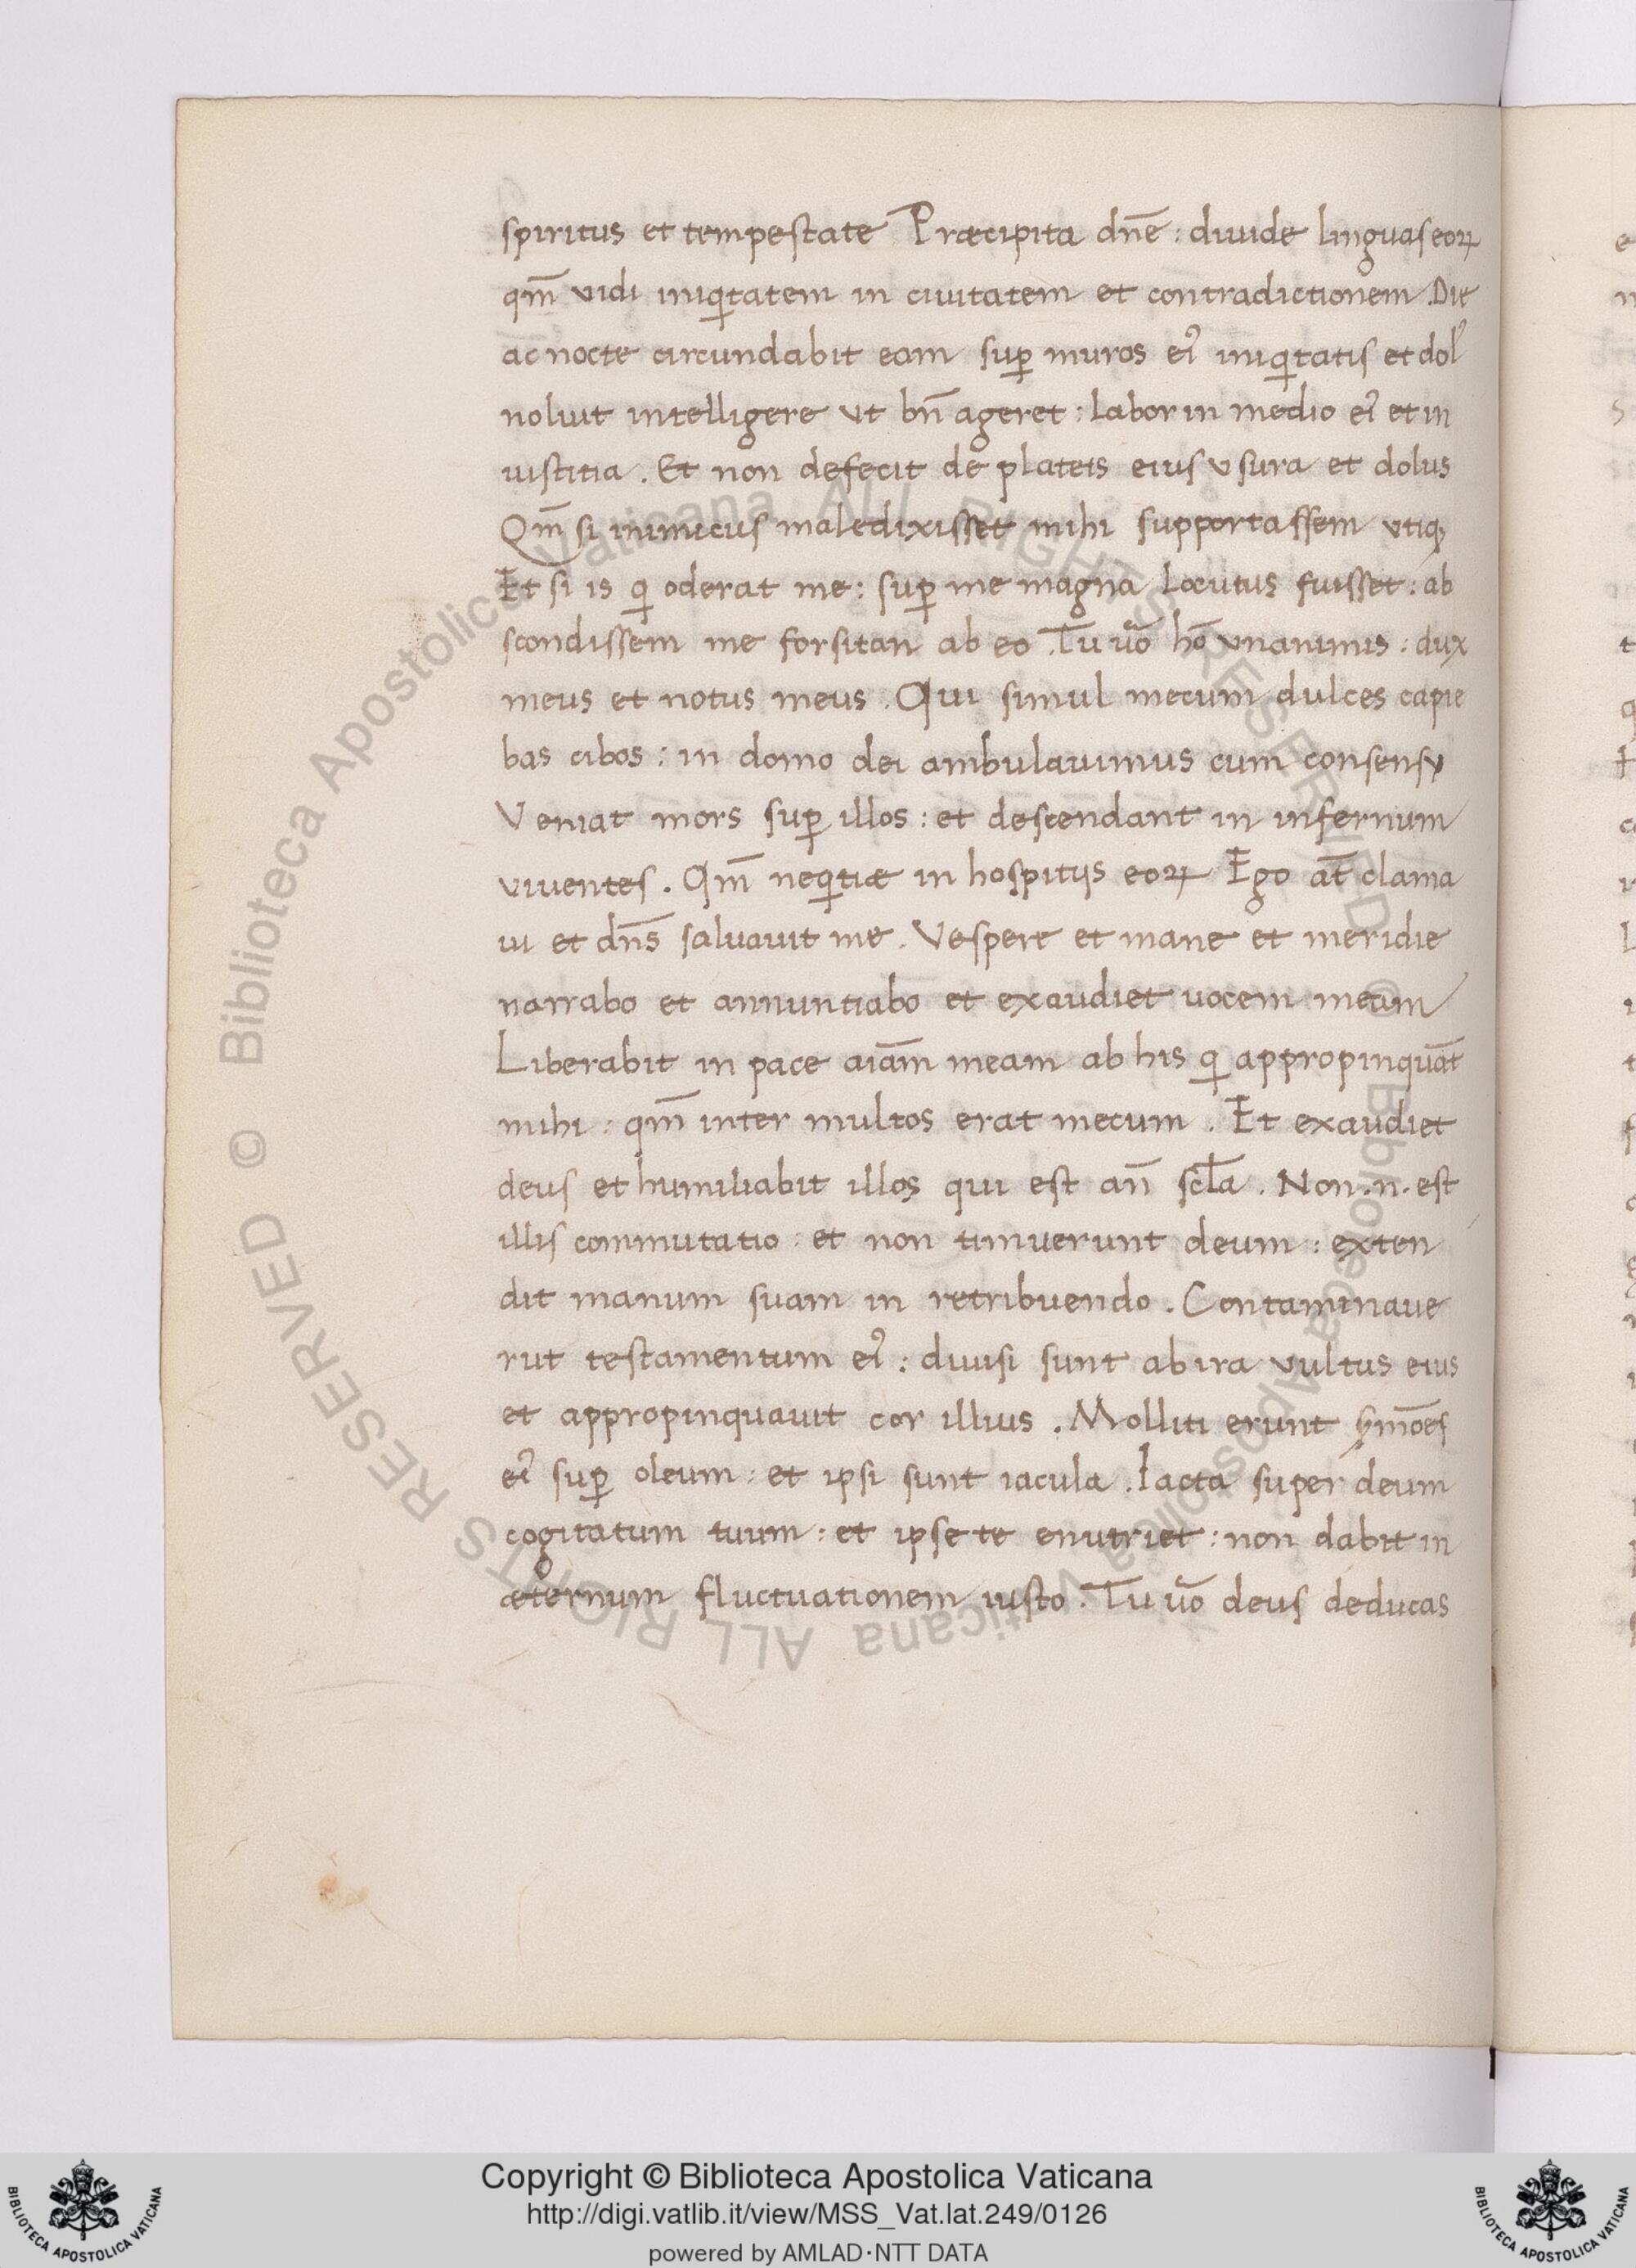 spiritus et tempestate Præcipita dn̄e : diuide linguas eoꝝ
qm̄ vidi iniqͥtatem in ciuitatem et contradictionem . Die
ac nocte circundabit eam suꝑ muros eiꝰ iniqͥtatis et dolꝰ
noluit intelligere vt bn̄ ageret : labor in medio eiꝰ et in
iustitia . Et non defecit de plateis eius vsura et dolus
Qm̄ si inimicus maledixisset mihi supportassem vtiqꝫ
Et si is qͥ oderat me : suꝑ me magna locutus fuisset : ab
scondissem me forsitan ab eo . Tu uo᷎ hō vnanimis : dux
meus et notus meus . Qui simul mecum dulces capie
bas cibos : in domo dei ambulauimus cum consensu
Veniat mors suꝑ illos : et descendant in infernum
viuentes . Qm̄ neqͥtiæ in hospitijs eoꝝ Ego at̄ clama
ui et dn̄s saluauit me . Vespere et mane et meridie
narrabo et annuntiabo et exaudiet uocem meam
Liberabit in pace aīam meam ab his qͥ appropinquāt
mihi : qm̄ inter multos erat mecum . Et exaudiet
deus et humiliabit illos qui est an̄ scl̄a . Non .n. est
illis commutatio : et non timuerunt deum : exten
dit manum suam in retribuendo . Contaminaue
rut testamentum eiꝰ : diuisi sunt ab ira vultus eius
et appropinquauit cor illius . Molliti erunt ẏmōes
eiꝰ suꝑ oleum : et ipsi sunt iacula . Iacta super deum
cogitatum tuum : et ipse te enutriet : non dabit in
æternum fluctuationem iusto . Tu uo᷎ deus deducas
© Biblioteca Apostolica Vaticana ALL RIGHTS RESERVED © Biblioteca Apostolica Vaticana ALL RIGHTS RESERVED
BIBLIOTECA APOSTOLICA VATICANA
Copyright © Biblioteca Apostolica Vaticana
http://digi.vatlib.it/view/MSS_Vat.lat.249/0126
powered by AMLAD·NTT DATA
BIBLIOTECA APOSTOLICA VATICANA